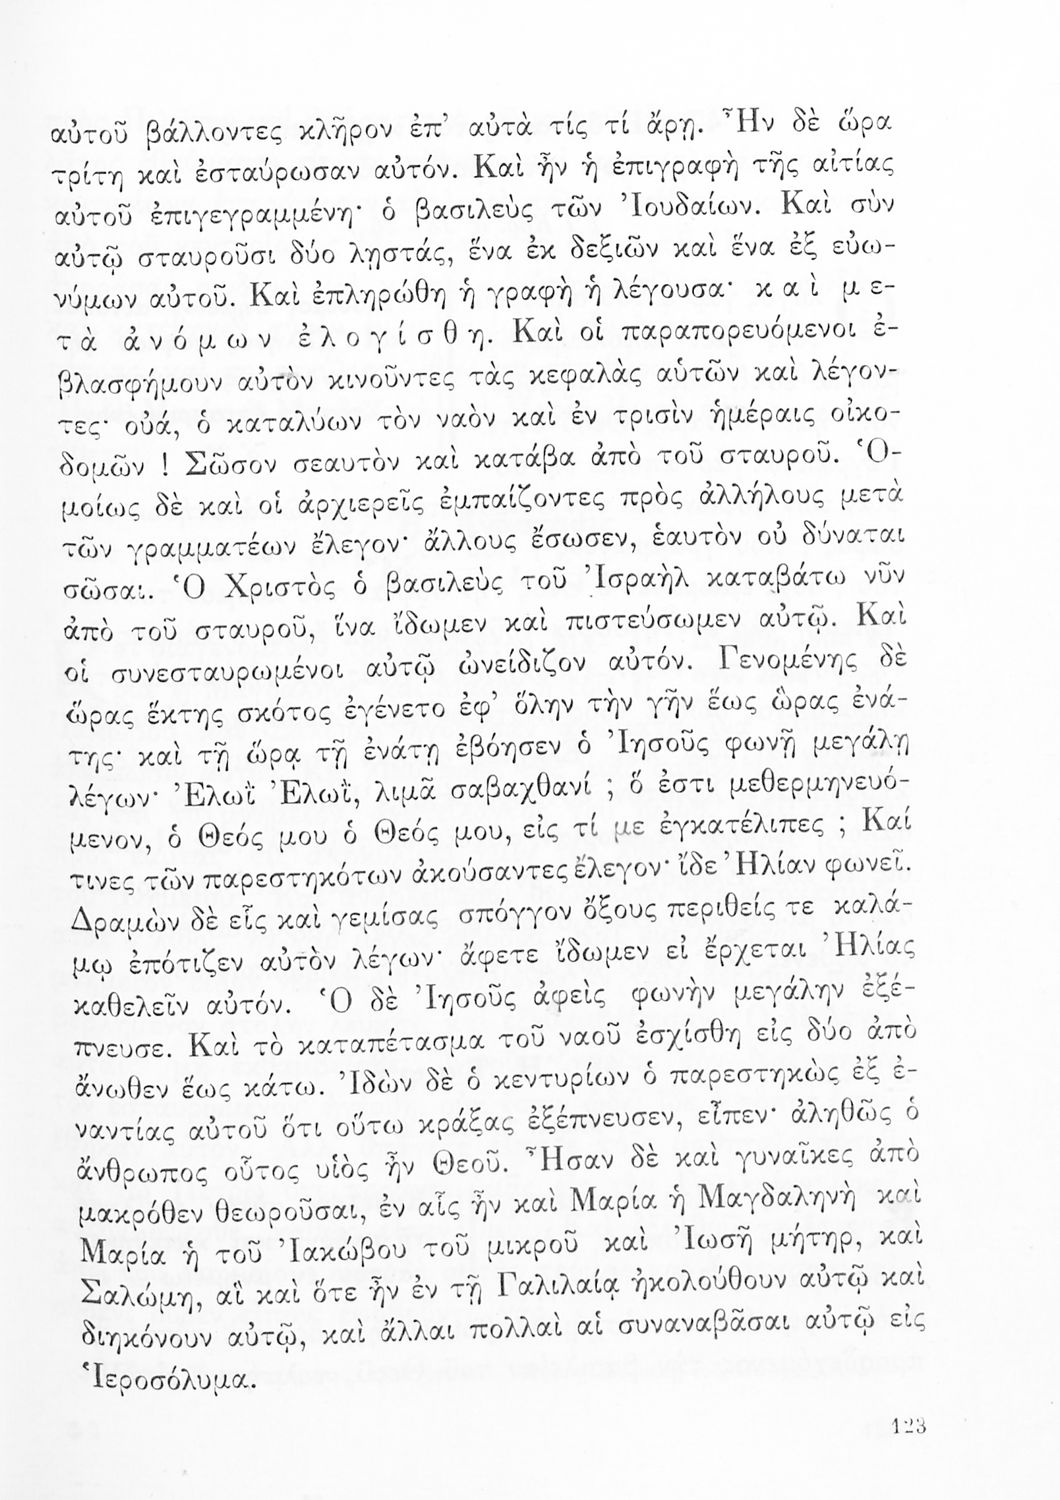 αὐτοῦ βάλλοντες κλῆρον ἐπ’ αὐτὰ τίς τί ἄρῃ. Ἦν δὲ ὥρα
τρίτη καὶ ἐσταύρωσαν αὐτόν. Καὶ ἦν ἡ ἐπιγραφὴ τῆς αἰτίας
αὐτοῦ ἐπιγεγραμμένη· ὁ βασιλεὺς τῶν Ἰουδαίων. Καὶ σὺν
αὐτῷ σταυροῦσι δύο λῃστάς, ἕνα ἐκ δεξιῶν καὶ ἕνα ἐξ εὐω-
νύμων αὐτοῦ. Καὶ ἐπληρώθη ἡ γραφὴ ἡ λέγουσα· κ α ὶ μ ε-
τ ὰ ἀ ν ό μ ω ν ἐ λ ο γ ί σ θ η. Καὶ οἱ παραπορευόμενοι ἐ-
βλασφήμουν αὐτὸν κινοῦντες τὰς κεφαλὰς αὑτῶν καὶ λέγον-
τες· οὐά, ὁ καταλύων τὸν ναὸν καὶ ἐν τρισὶν ἡμέραις οἰκο-
δομῶν ! Σῶσον σεαυτὸν καὶ κατάβα ἀπὸ τοῦ σταυροῦ. Ὁ-
μοίως δὲ καὶ οἱ ἀρχιερεῖς ἐμπαίζοντες πρὸς ἀλλήλους μετὰ
τῶν γραμματέων ἔλεγον· ἄλλους ἔσωσεν, ἑαυτὸν οὐ δύναται
σῶσαι. Ὁ Χριστὸς ὁ βασιλεὺς τοῦ Ἰσραὴλ καταβάτω νῦν
ἀπὸ τοῦ σταυροῦ, ἵνα ἴδωμεν καὶ πιστεύσωμεν αὐτῷ. Καὶ
οἱ συνεσταυρωμένοι αὐτῷ ὠνείδιζον αὐτόν. Γενομένης δὲ
ὥρας ἕκτης σκότος ἐγένετο ἐφ’ ὅλην τὴν γῆν ἕως ὥρας ἐνά-
της· καὶ τῇ ὥρᾳ τῇ ἐνάτῃ ἐβόησεν ὁ Ἰησοῦς φωνῇ μεγάλῃ
λέγων· Ἐλωῒ Ἐλωΐ, λιμᾶ σαβαχθανί ; ὅ ἐστι μεθερμηνευό-
μενον, ὁ Θεός μου ὁ Θεός μου, εἰς τί με ἐγκατέλιπες ; Καί
τινες τῶν παρεστηκότων ἀκούσαντες ἔλεγον· ἴδε Ἠλίαν φωνεῖ.
Δραμὼν δὲ εἷς καὶ γεμίσας σπόγγον ὄξους περιθείς τε καλά-
μῳ ἐπότιζεν αὐτὸν λέγων· ἄφετε ἴδωμεν εἰ ἔρχεται Ἠλίας
καθελεῖν αὐτόν. Ὁ δὲ Ἰησοῦς ἀφεὶς φωνὴν μεγάλην ἐξέ-
πνευσε. Καὶ τὸ καταπέτασμα τοῦ ναοῦ ἐσχίσθη εἰς δύο ἀπὸ
ἄνωθεν ἕως κάτω. Ἰδὼν δὲ ὁ κεντυρίων ὁ παρεστηκὼς ἐξ ἐ-
ναντίας αὐτοῦ ὅτι οὕτω κράξας ἐξέπνευσεν, εἶπεν· ἀληθῶς ὁ
ἄνθρωπος οὗτος υἱὸς ἦν Θεοῦ. Ἦσαν δὲ καὶ γυναῖκες ἀπὸ
μακρόθεν θεωροῦσαι, ἐν αἷς ἦν καὶ Μαρία ἡ Μαγδαληνὴ καὶ
Μαρία ἡ τοῦ Ἰακώβου τοῦ μικροῦ καὶ Ἰωσῆ μήτηρ, καὶ
Σαλώμη, αἳ καὶ ὅτε ἦν ἐν τῇ Γαλιλαίᾳ ἠκολούθουν αὐτῷ καὶ
διηκόνουν αὐτῷ, καὶ ἄλλαι πολλαὶ αἱ συναναβᾶσαι αὐτῷ εἰς
Ἱεροσόλυμα.
123